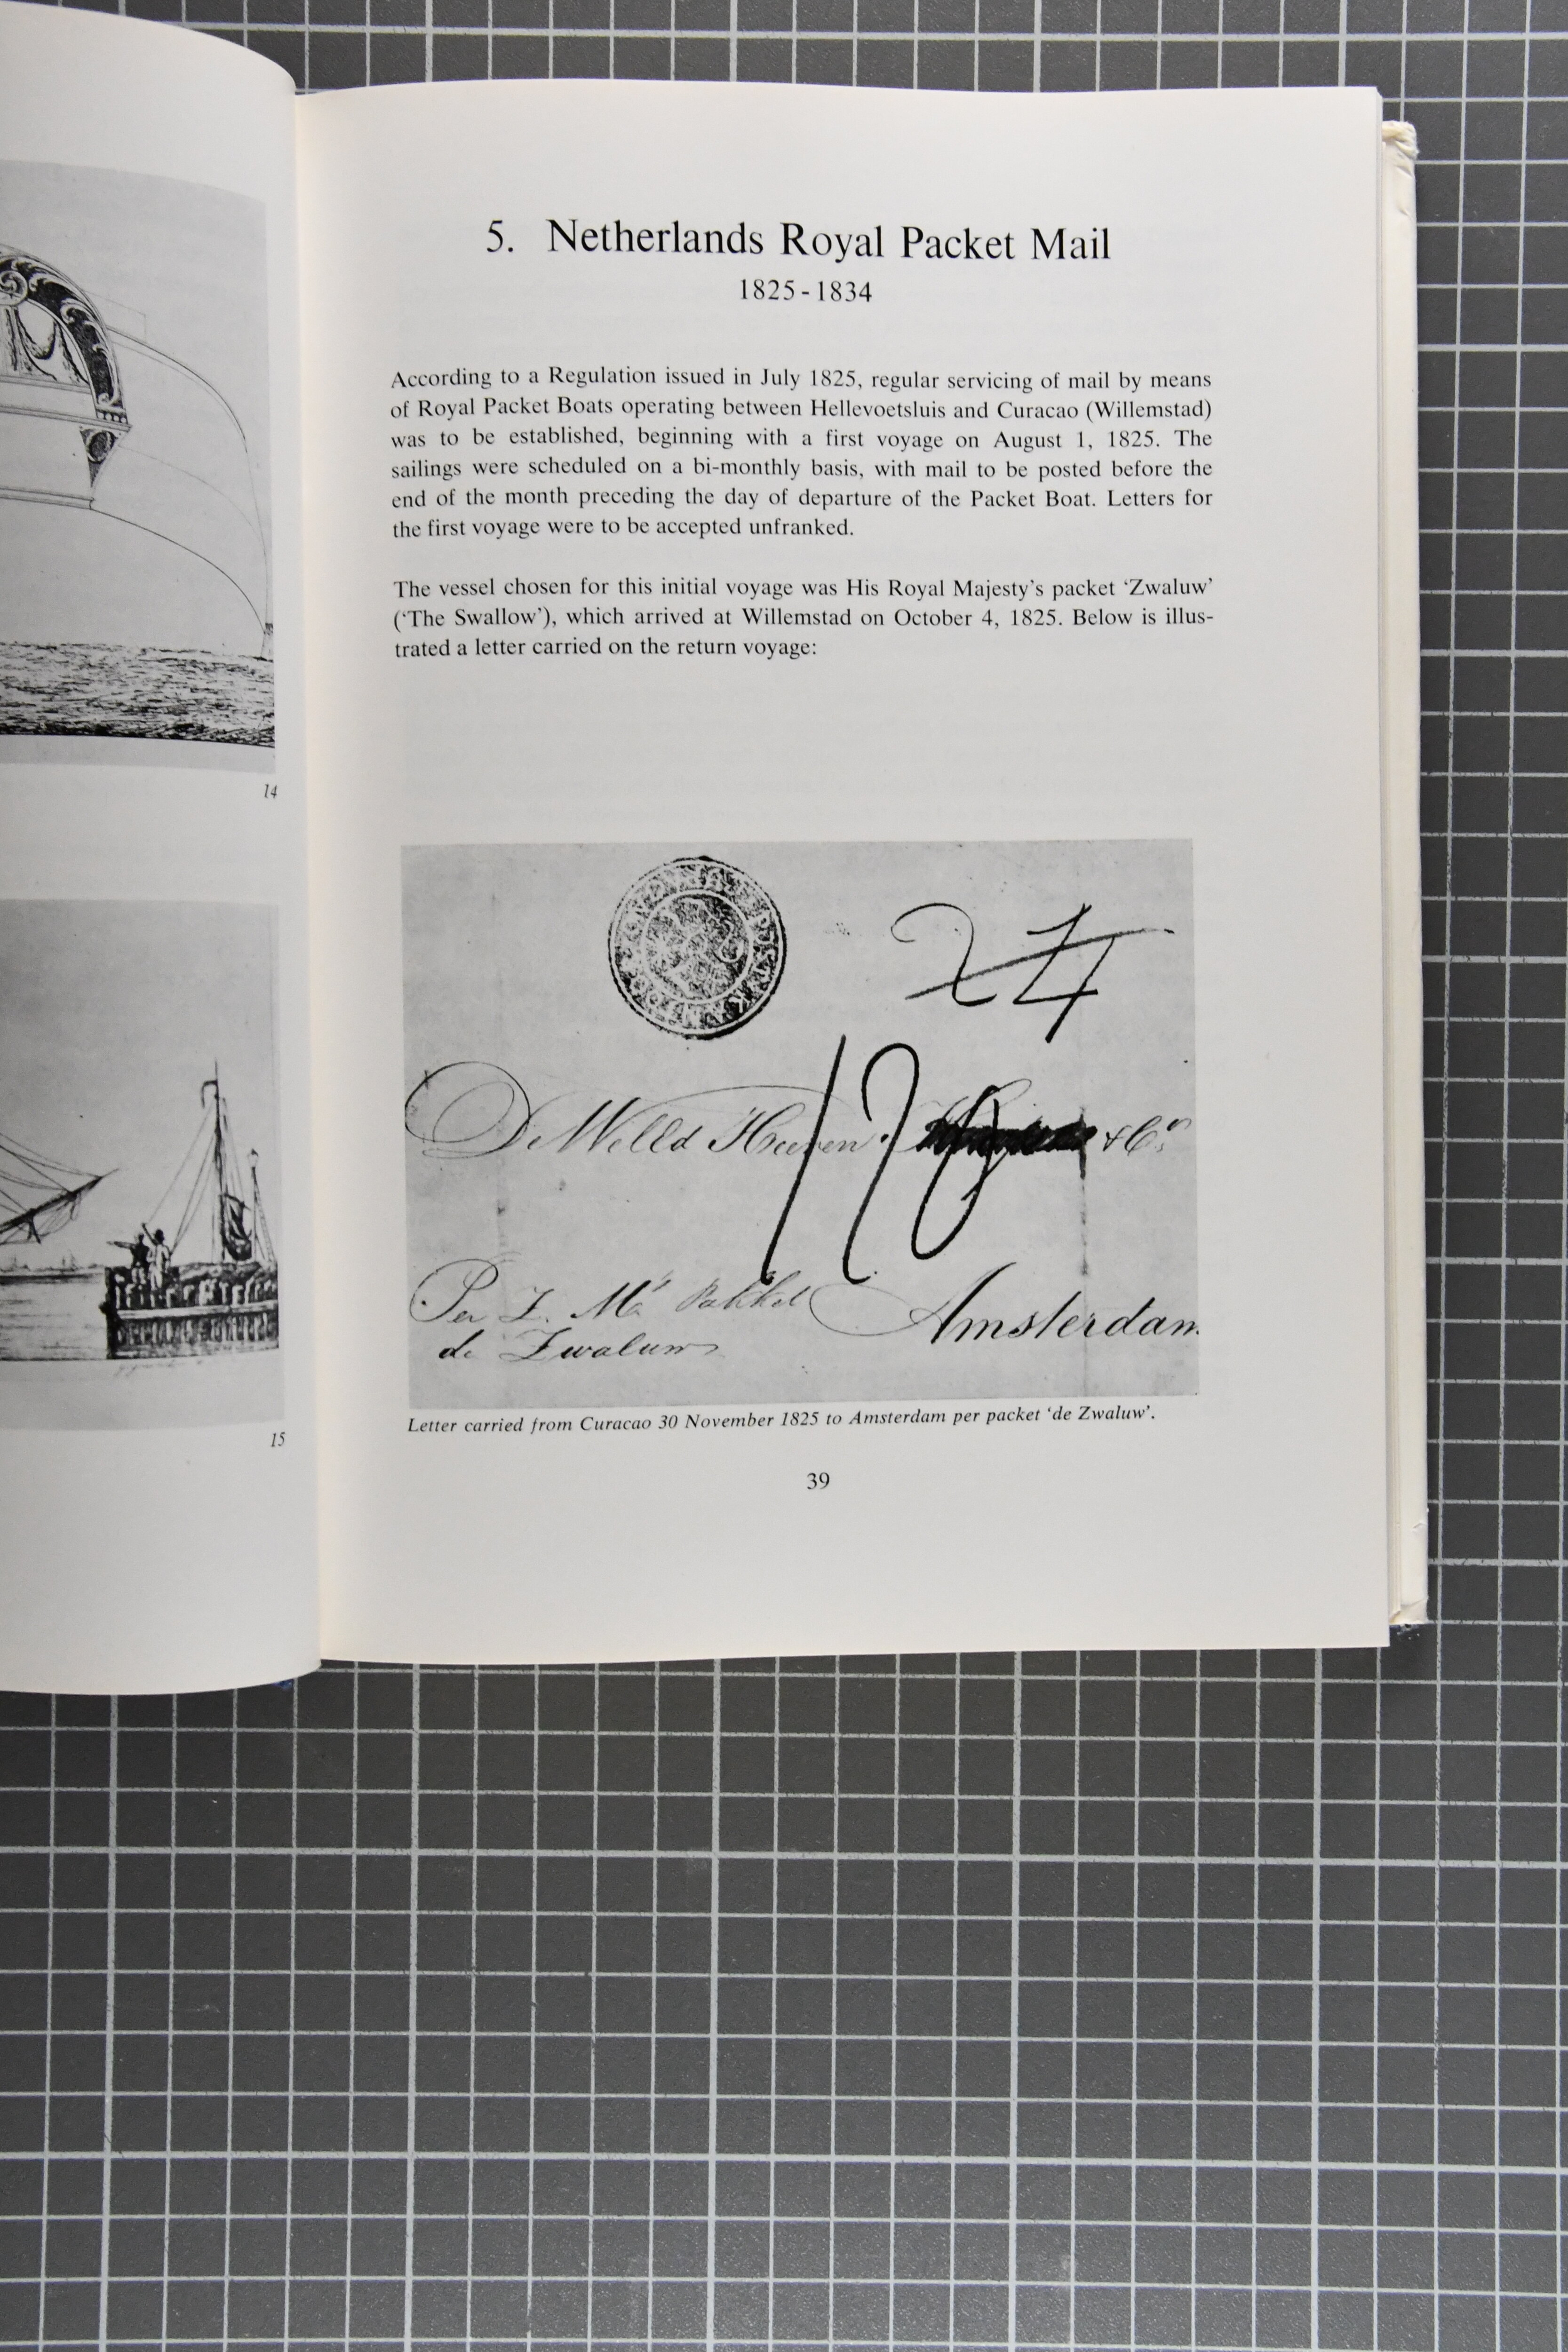 14
15
5. Netherlands Royal Packet Mail
1825-1834
According to a Regulation issued in July 1825, regular servicing of mail by means
of Royal Packet Boats operating between Hellevoetsluis and Curacao (Willemstad)
was to be established, beginning with a first voyage on August 1, 1825. The
sailings were scheduled on a bi-monthly basis, with mail to be posted before the
end of the month preceding the day of departure of the Packet Boat. Letters for
the first voyage were to be accepted unfranked.
The vessel chosen for this initial voyage was His Royal Majesty's packet ‘Zwaluw’
(‘The Swallow’), which arrived at Willemstad on October 4, 1825. Below is illus-
trated a letter carried on the return voyage:
24
De Heeren & Co.
Per Z. M. Pakket
de Zwaluw
Amsterdam
Letter carried from Curacao 30 November 1825 to Amsterdam per packet ‘de Zwaluw’.
39